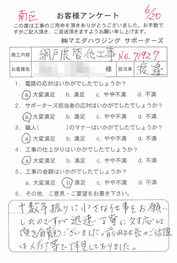 南区
お客様アンケート
6/20
この度は工事のご用命を頂きありがとうございました。お手数で
すがご記入頂き、ご返送頂きますようお願い申し上げます。
㈱マエダハウジング サポーターズ
施工内容 網戸張替他工事 No.71927
お名前 様 担当者 渡邉
1. 電話の対応はいかがでしたでしょうか?
a 大変満足 b. 満足 c. やや不満 d. 不満
2. サポーターズ担当者の対応はいかがでしたでしょうか?
a 大変満足 b. 満足 c. やや不満 d. 不満
3. 職人( )のマナーはいかがでしたでしょうか?
a 大変満足 b. 満足 c. やや不満 d. 不満
4. 工事の仕上がりはいかがでしたでしょうか?
a 大変満足 b. 満足 c. やや不満 d. 不満
5. 工事の金額はいかがでしたでしょうか?
a. 大変満足 b 満足 c. やや不満 d. 不満
6. その他、ご意見・ご要望をお書き下さい。
十数年振りに小さな仕事をお願い
したのですが迅速、丁寧に対応して
頂き有難うございました。前田社長の活躍
は人力等で拝見しておりました。